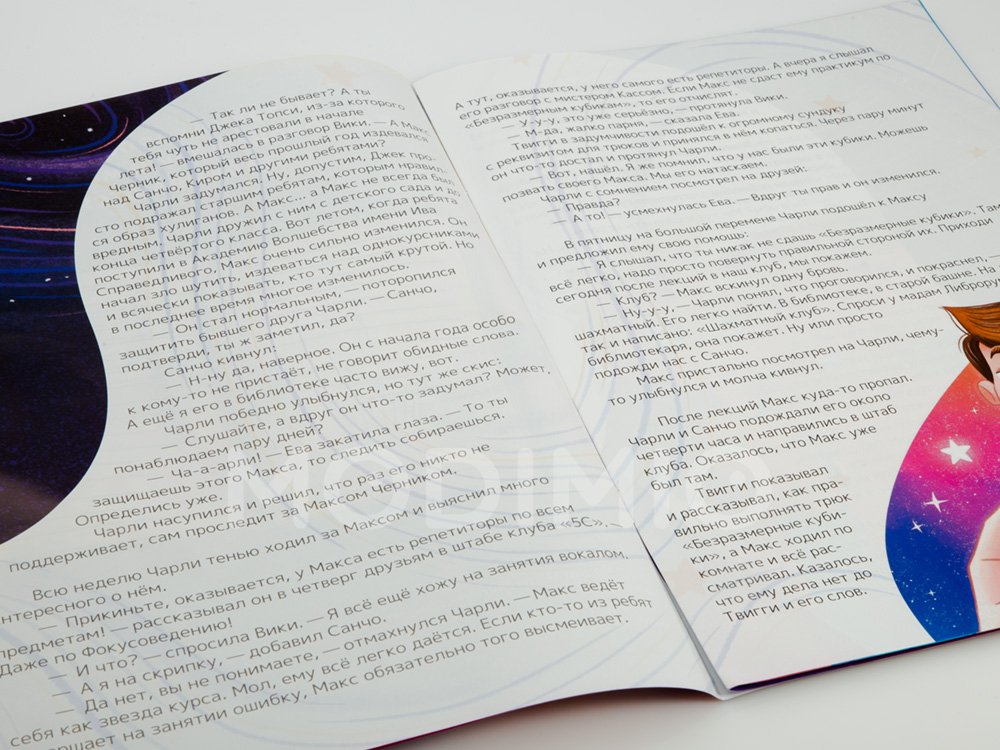 — Так ли не бывает? А ты
вспомни Джека Топси, из-за которого
тебя чуть не арестовали в начале
лета! — вмешалась в разговор Вики. — А Макс
Черник, который весь прошлый год издевался
над Санчо, Киром и другими ребятами?
Чарли задумался. Ну, допустим, Джек про-
сто подражал старшим ребятам, которым нравил-
ся образ хулиганов. А Макс... а Макс не всегда был
вредным. Чарли дружил с ним с детского сада и до
конца четвёртого класса. Вот летом, когда ребята
поступили в Академию Волшебства имени Ива
Справедливого, Макс очень сильно изменился. Он
начал зло шутить, издеваться над однокурсниками
и всячески показывать, кто тут самый крутой. Но
в последнее время многое изменилось.
— Он стал нормальным, — поторопился
защитить бывшего друга Чарли. — Санчо,
подтверди, ты ж заметил, да?
Санчо кивнул:
— Н-ну да, наверное. Он с начала года особо
к кому-то не пристаёт, не говорит обидные слова.
А ещё я его в библиотеке часто вижу, вот.
Чарли победно улыбнулся, но тут же скис:
— Слушайте, а вдруг он что-то задумал? Может,
понаблюдаем пару дней?
— Ча-а-арли! — Ева закатила глаза. — То ты
защищаешь этого Макса, то следить собираешься.
Определись уже.
Чарли насупился и решил, что раз его никто не
поддерживает, сам проследит за Максом Черником.
Всю неделю Чарли тенью ходил за Максом и выяснил много
интересного о нём.
— Прикиньте, оказывается, у Макса есть репетиторы по всем
предметам! — рассказывал он в четверг друзьям в штабе клуба «5С», -
Даже по Фокусоведению!
— И что? — спросила Вики. — Я всё ещё хожу на занятия вокалом.
— А я на скрипку, — добавил Санчо.
— Да нет, вы не понимаете, — отмахнулся Чарли. — Макс ведёт
себя как звезда курса. Мол, ему всё легко даётся. Если кто-то из ребят
на занятии ошибку, Макс обязательно того высмеивает.
А тут, оказывается, у него самого есть репетиторы. А вчера я слышал
его разговор с мистером Кассом. Если Макс не сдаст ему практикум по
«Безразмерным кубикам», то его отчислят.
— У-у-у, это уже серьёзно, — протянула Вики.
— М-да, жалко парня, — сказала Ева.
Твигги в задумчивости подошёл к огромному сундуку
с реквизитом для трюков и принялся в нём копаться. Через пару минут
он что-то достал и протянул Чарли.
— Вот, нашёл. Я же помнил, что у нас были эти кубики. Можешь
позвать своего Макса. Мы его натаскаем.
Чарли с сомнением посмотрел на друзей:
— Правда?
— А то! — усмехнулась Ева. — Вдруг ты прав и он изменился.
В пятницу на большой перемене Чарли подошёл к Максу
и предложил ему свою помощь:
— Я слышал, что ты никак не сдашь «Безразмерные кубики». Там
всё легко, надо просто повернуть правильной стороной их. Приходи
сегодня после лекций в наш клуб, мы покажем.
— Клуб? — Макс вскинул одну бровь.
— Ну-у-у, — Чарли понял, что проговорился, и покраснел, —
шахматный. Его легко найти. В библиотеке, в старой башне. На
так и написано: «Шахматный клуб». Спроси у мадам Либрору
библиотекаря, она покажет. Ну или просто
подожди нас с Санчо.
Макс пристально посмотрел на Чарли, чему-
то улыбнулся и молча кивнул.
После лекций Макс куда-то пропал.
Чарли и Санчо подождали его около
четверти часа и направились в штаб
клуба. Оказалось, что Макс уже
был там.
Твигги показывал
и рассказывал, как пра-
вильно выполнять трюк
«Безразмерные куби-
ки», а Макс ходил по
комнате и всё рас-
сматривал. Казалось,
что ему дела нет до
Твигги и его слов.